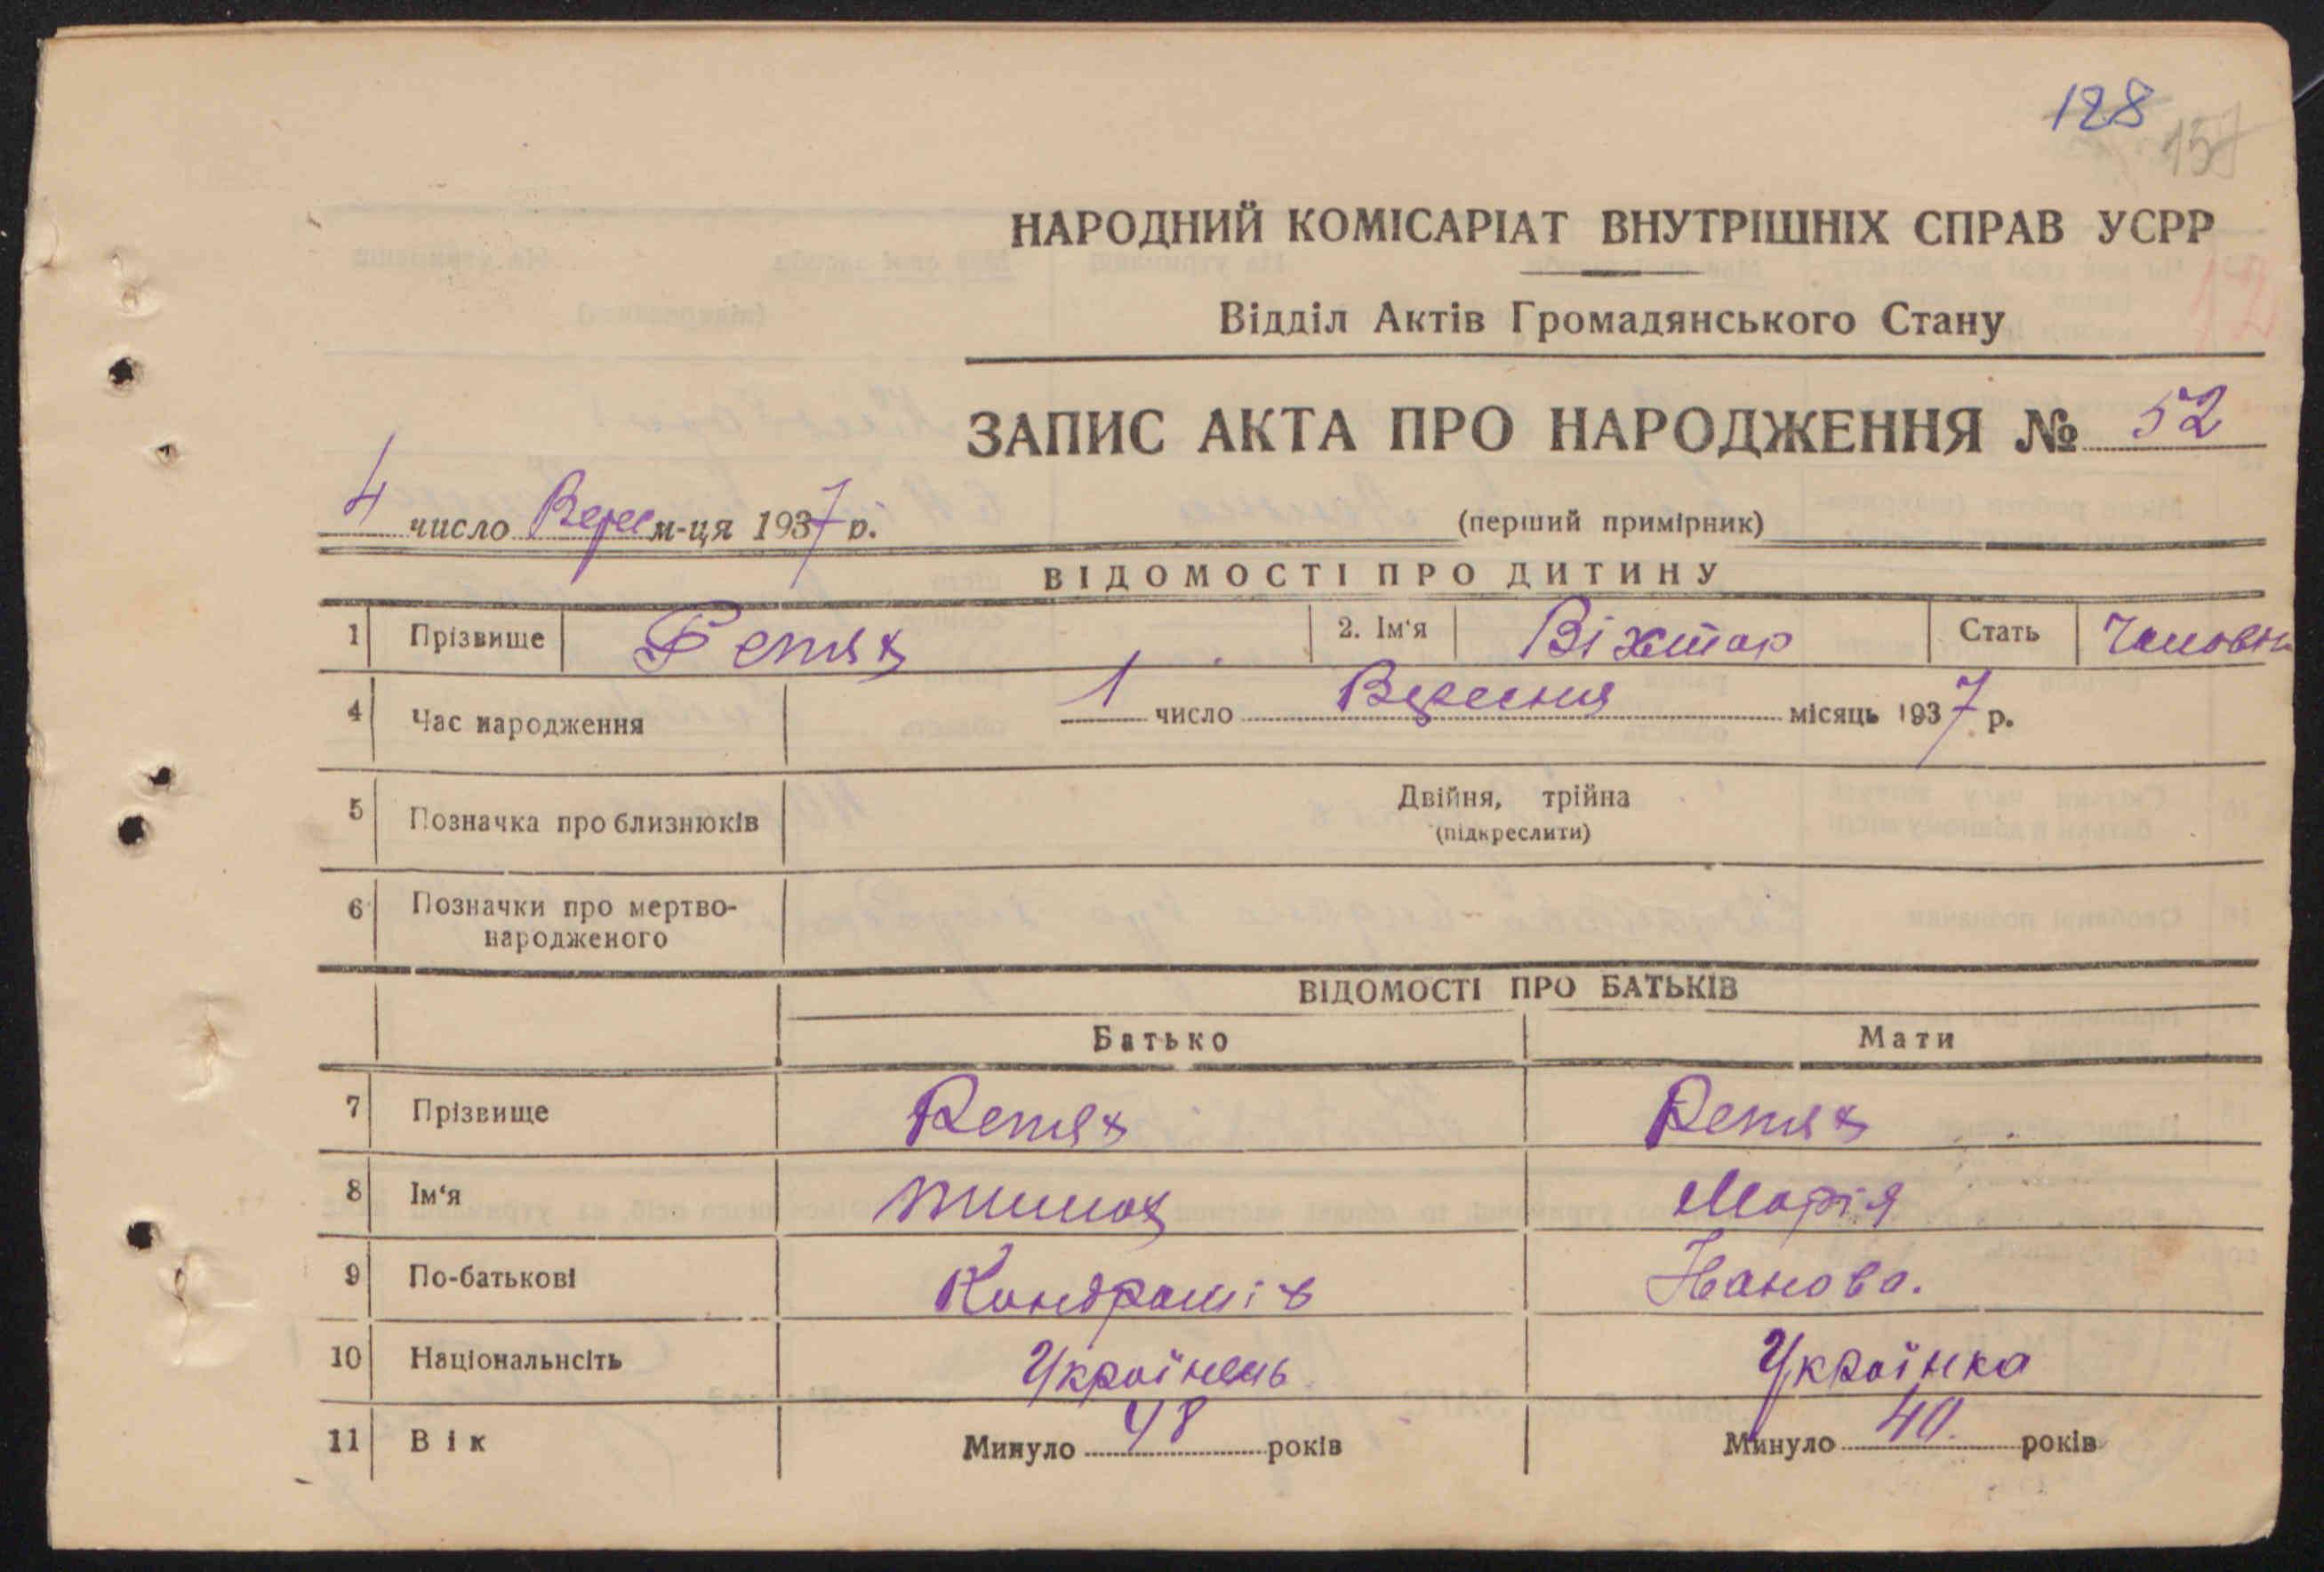 128
157
НАРОДНИЙ КОМІСАРІАТ ВНУТРІШНІХ СПРАВ УСРР
Відділ Актів Громадянського Стану
ЗАПИС АКТА ПРО НАРОДЖЕННЯ № 52
4 число Верес м-ця 1937 р.
(перший примірник)
ВІДОМОСТІ ПРО ДИТИНУ
1 Прізвище Ретях 2. Ім'я Віктор Стать Чоловіч
4 Час народження 1 число Вересня місяць 1937 р.
5 Позначка про близнюків Двійня, трійна
(підкреслити)
6 Позначки про мертво-
народженого
ВІДОМОСТІ ПРО БАТЬКІВ
Батько Мати
7 Прізвище Ретях Ретях
8 Ім'я Тимох Марія
9 По-батькові Кондратів Іванова.
10 Національнсіть Українець Українка
11 Вік Минуло 48 років Минуло 40. років